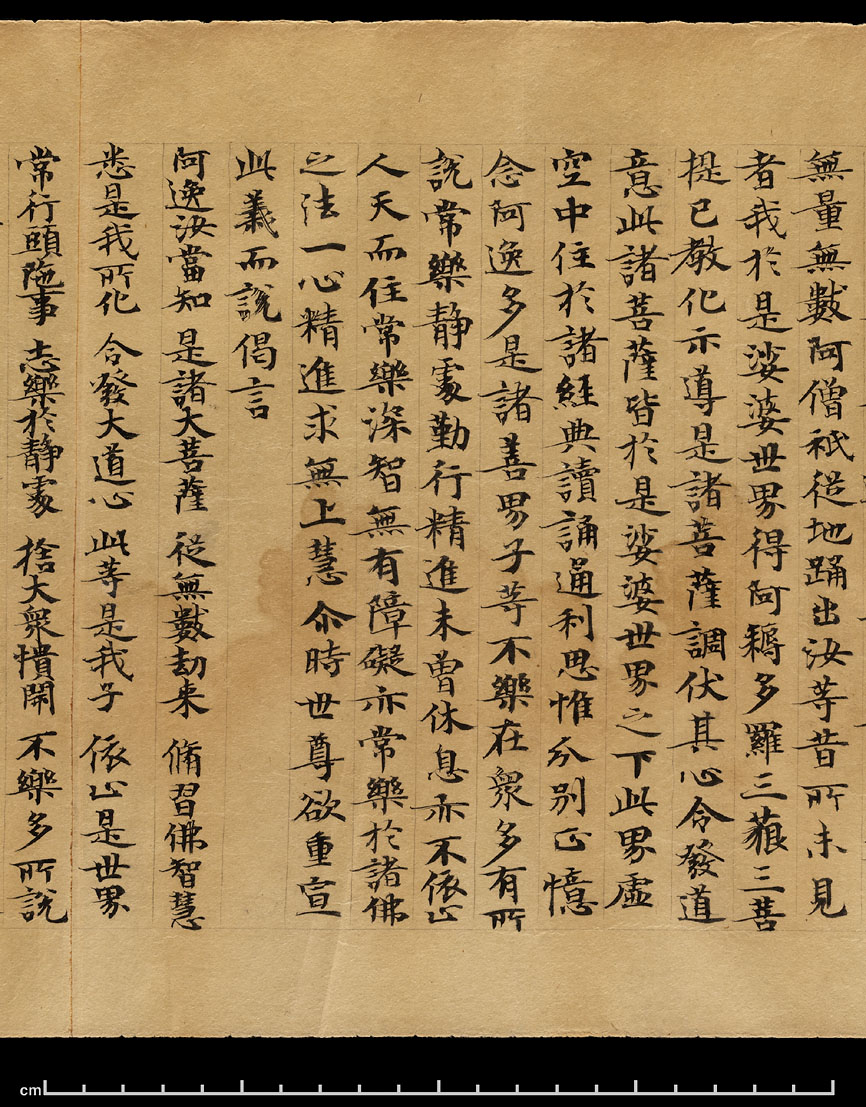 無量無數阿僧祇従地踊出汝等昔所未見
者我於是娑婆世界得阿耨多羅三藐三菩
提已教化示導是諸菩薩調伏其心令發道
意此諸菩薩皆於是娑婆世界之下此界虛
空中住於諸經典讀誦通利思惟分別正憶
念阿逸多是諸善男子等不樂在衆多有所
說常樂靜處勤行精進未曾休息亦不依止
人天而住常樂深智無有障礙亦常樂於諸佛
之法一心精進求無上慧尒時世尊欲重宣
此義而說偈言
阿逸汝當知 是諸大菩薩 従無數劫来 脩習佛智慧
悉是我所化 令發大道心 此等是我子 依止是世界
常行頭陁事 志樂於靜處 捨大衆憒閙 不樂多所說
cm